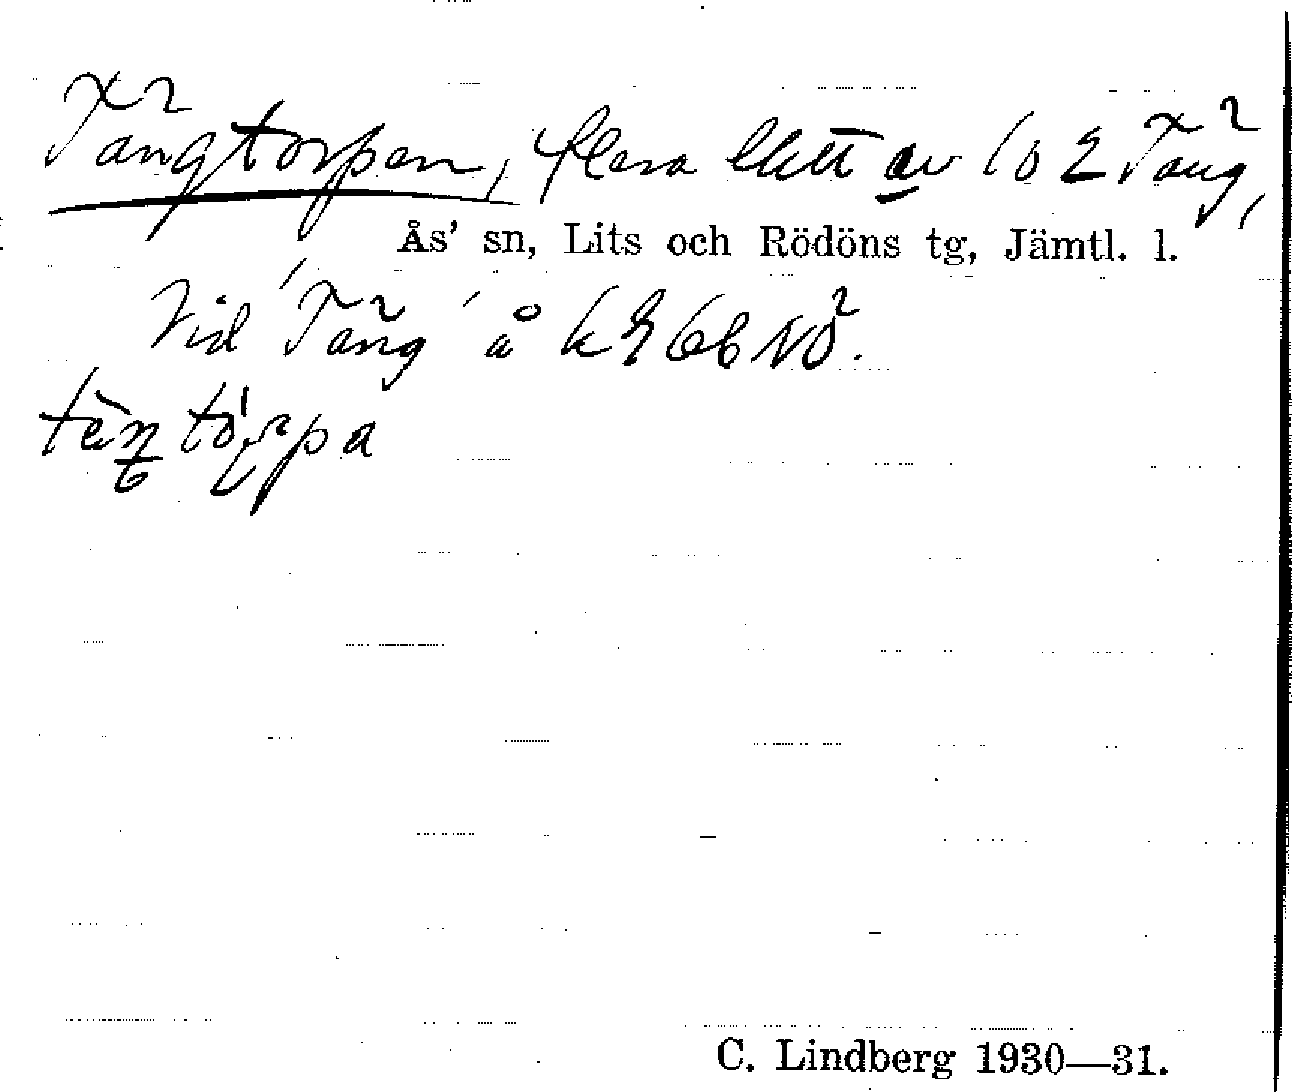 Tängtorpen, flera lht av lo 2 Täng,
Ås' sn, Lits och Rödöns tg, Jämtl. l.
Vid 'Täng' å k 2 6b NO.
C. Lindberg 1930—31.